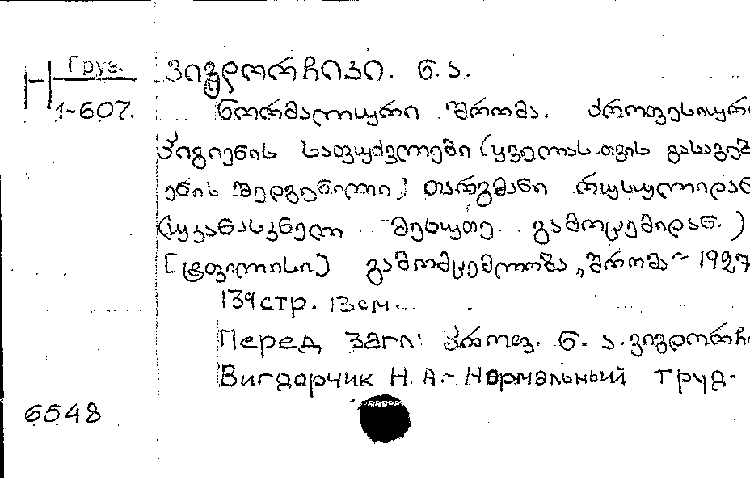 Груз.
1-607.
ვიგდორჩიკი. ნ. ა.
ნორმალიური შრომა. პროფესიური
ჰიგიენის საფუძვლები (ყველას თვის გასაგებ
ენის შედგენილი) თარგმანი რუსულიდან
(უკანასკნელ მეხუთე გამოცემიდან.)
[ტფილისი] გამომცემლობა „შრომა" 1927
139 стр. 13 см.
Перед загл: პროფ. ნ. ა. ვიგდორჩი
Вигдорчик Н. А. - Нормальный труд.
6548